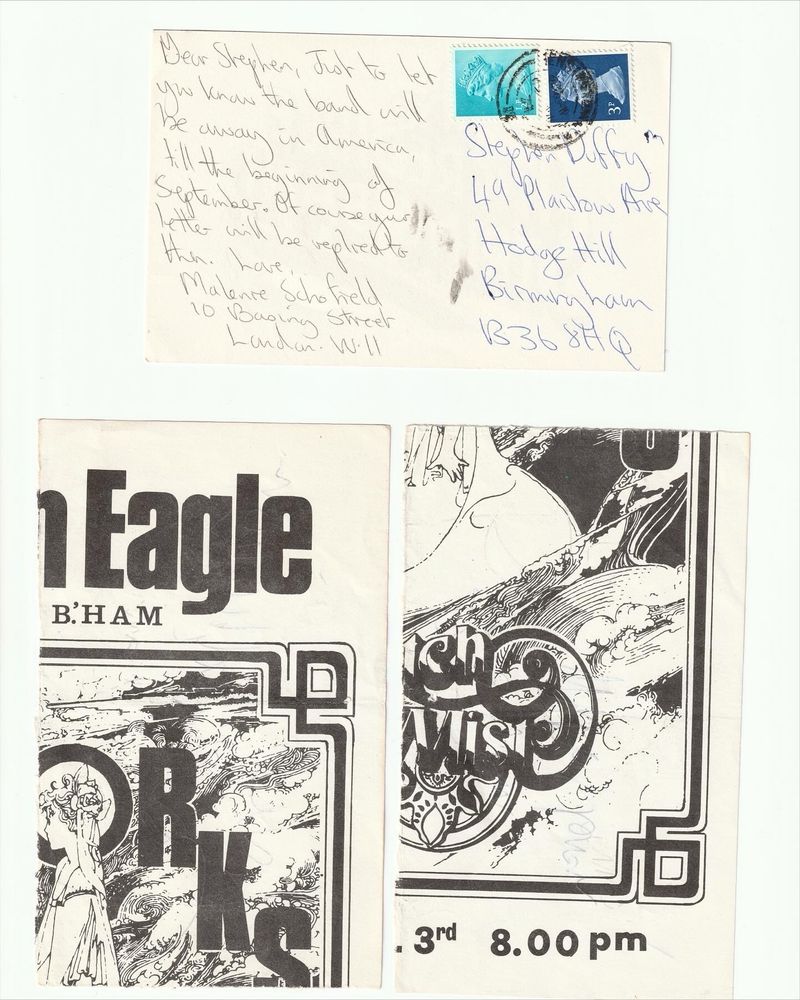 Dear Stephen, Just to let
you know the band will
be away in America,
till the beginning of
September. Of course your
letter will be replied to
then. Love,
Malenie Schofield
10 Basing Street
London. W.11
3P
Stephen Duffy
49 Plaistow Ave
Hodge Hill
Birmingham
B36 8HQ
n Eagle
B'HAM
ORKS
ish
Mist
. 3rd 8.00pm